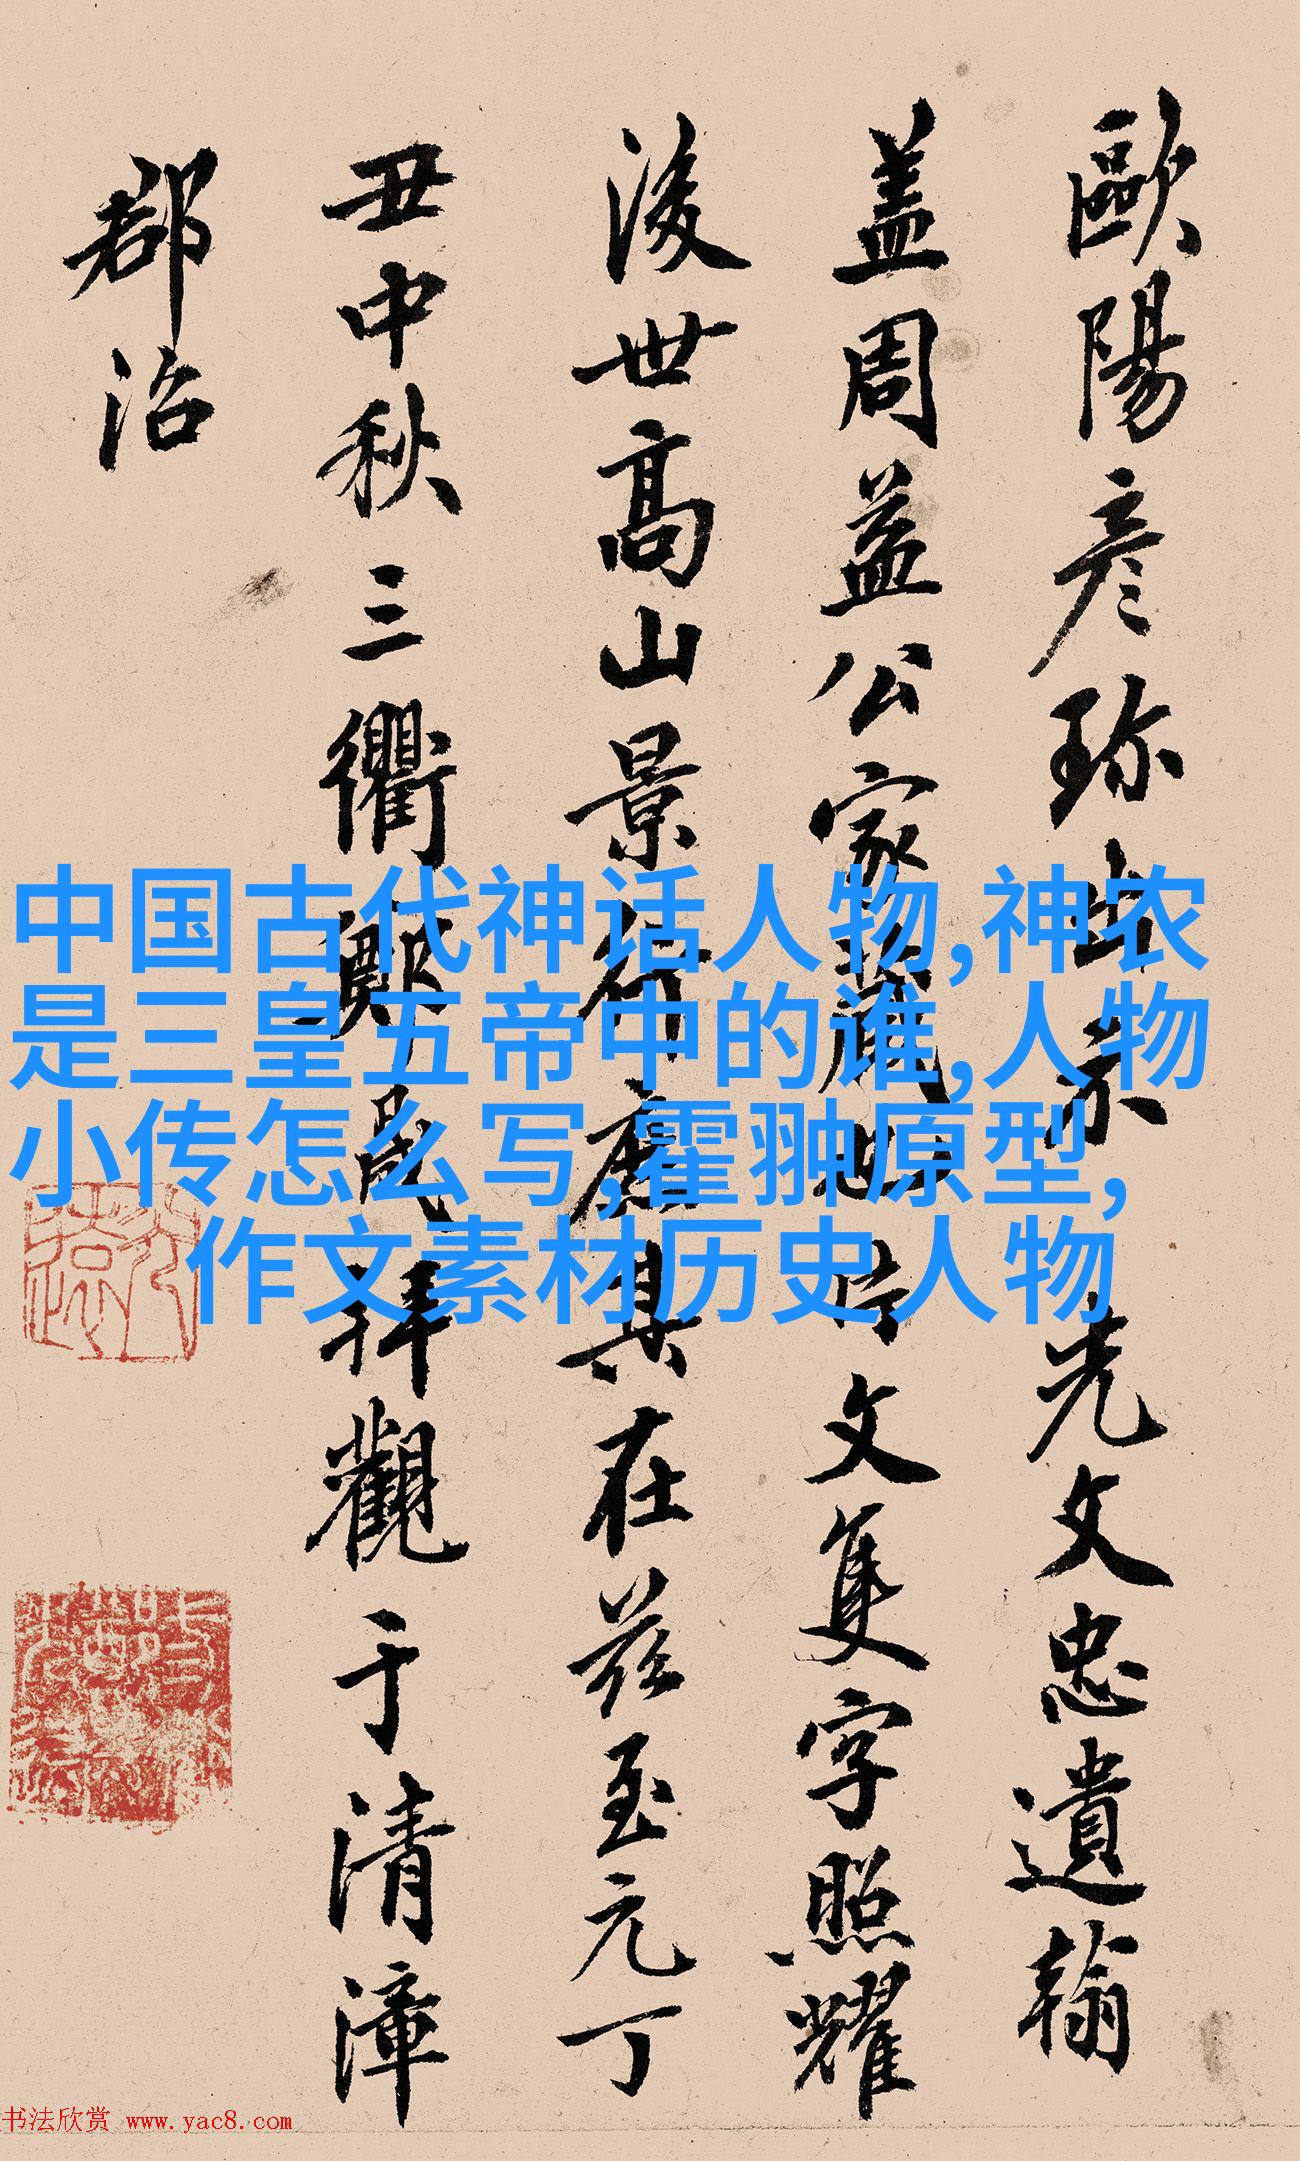 歐陽彦珍出示先文忠遺翰
盖周益公家藏也片文隻字照耀
後世高山景行具在兹至元丁
丑中秋三衢鄭拜觀于清漳
郡治
中国古代神话人物,神农
是三皇五帝中的谁,人物
小传怎么写,霍翀原型,
作文素材历史人物
书法欣赏 www.yac8.com